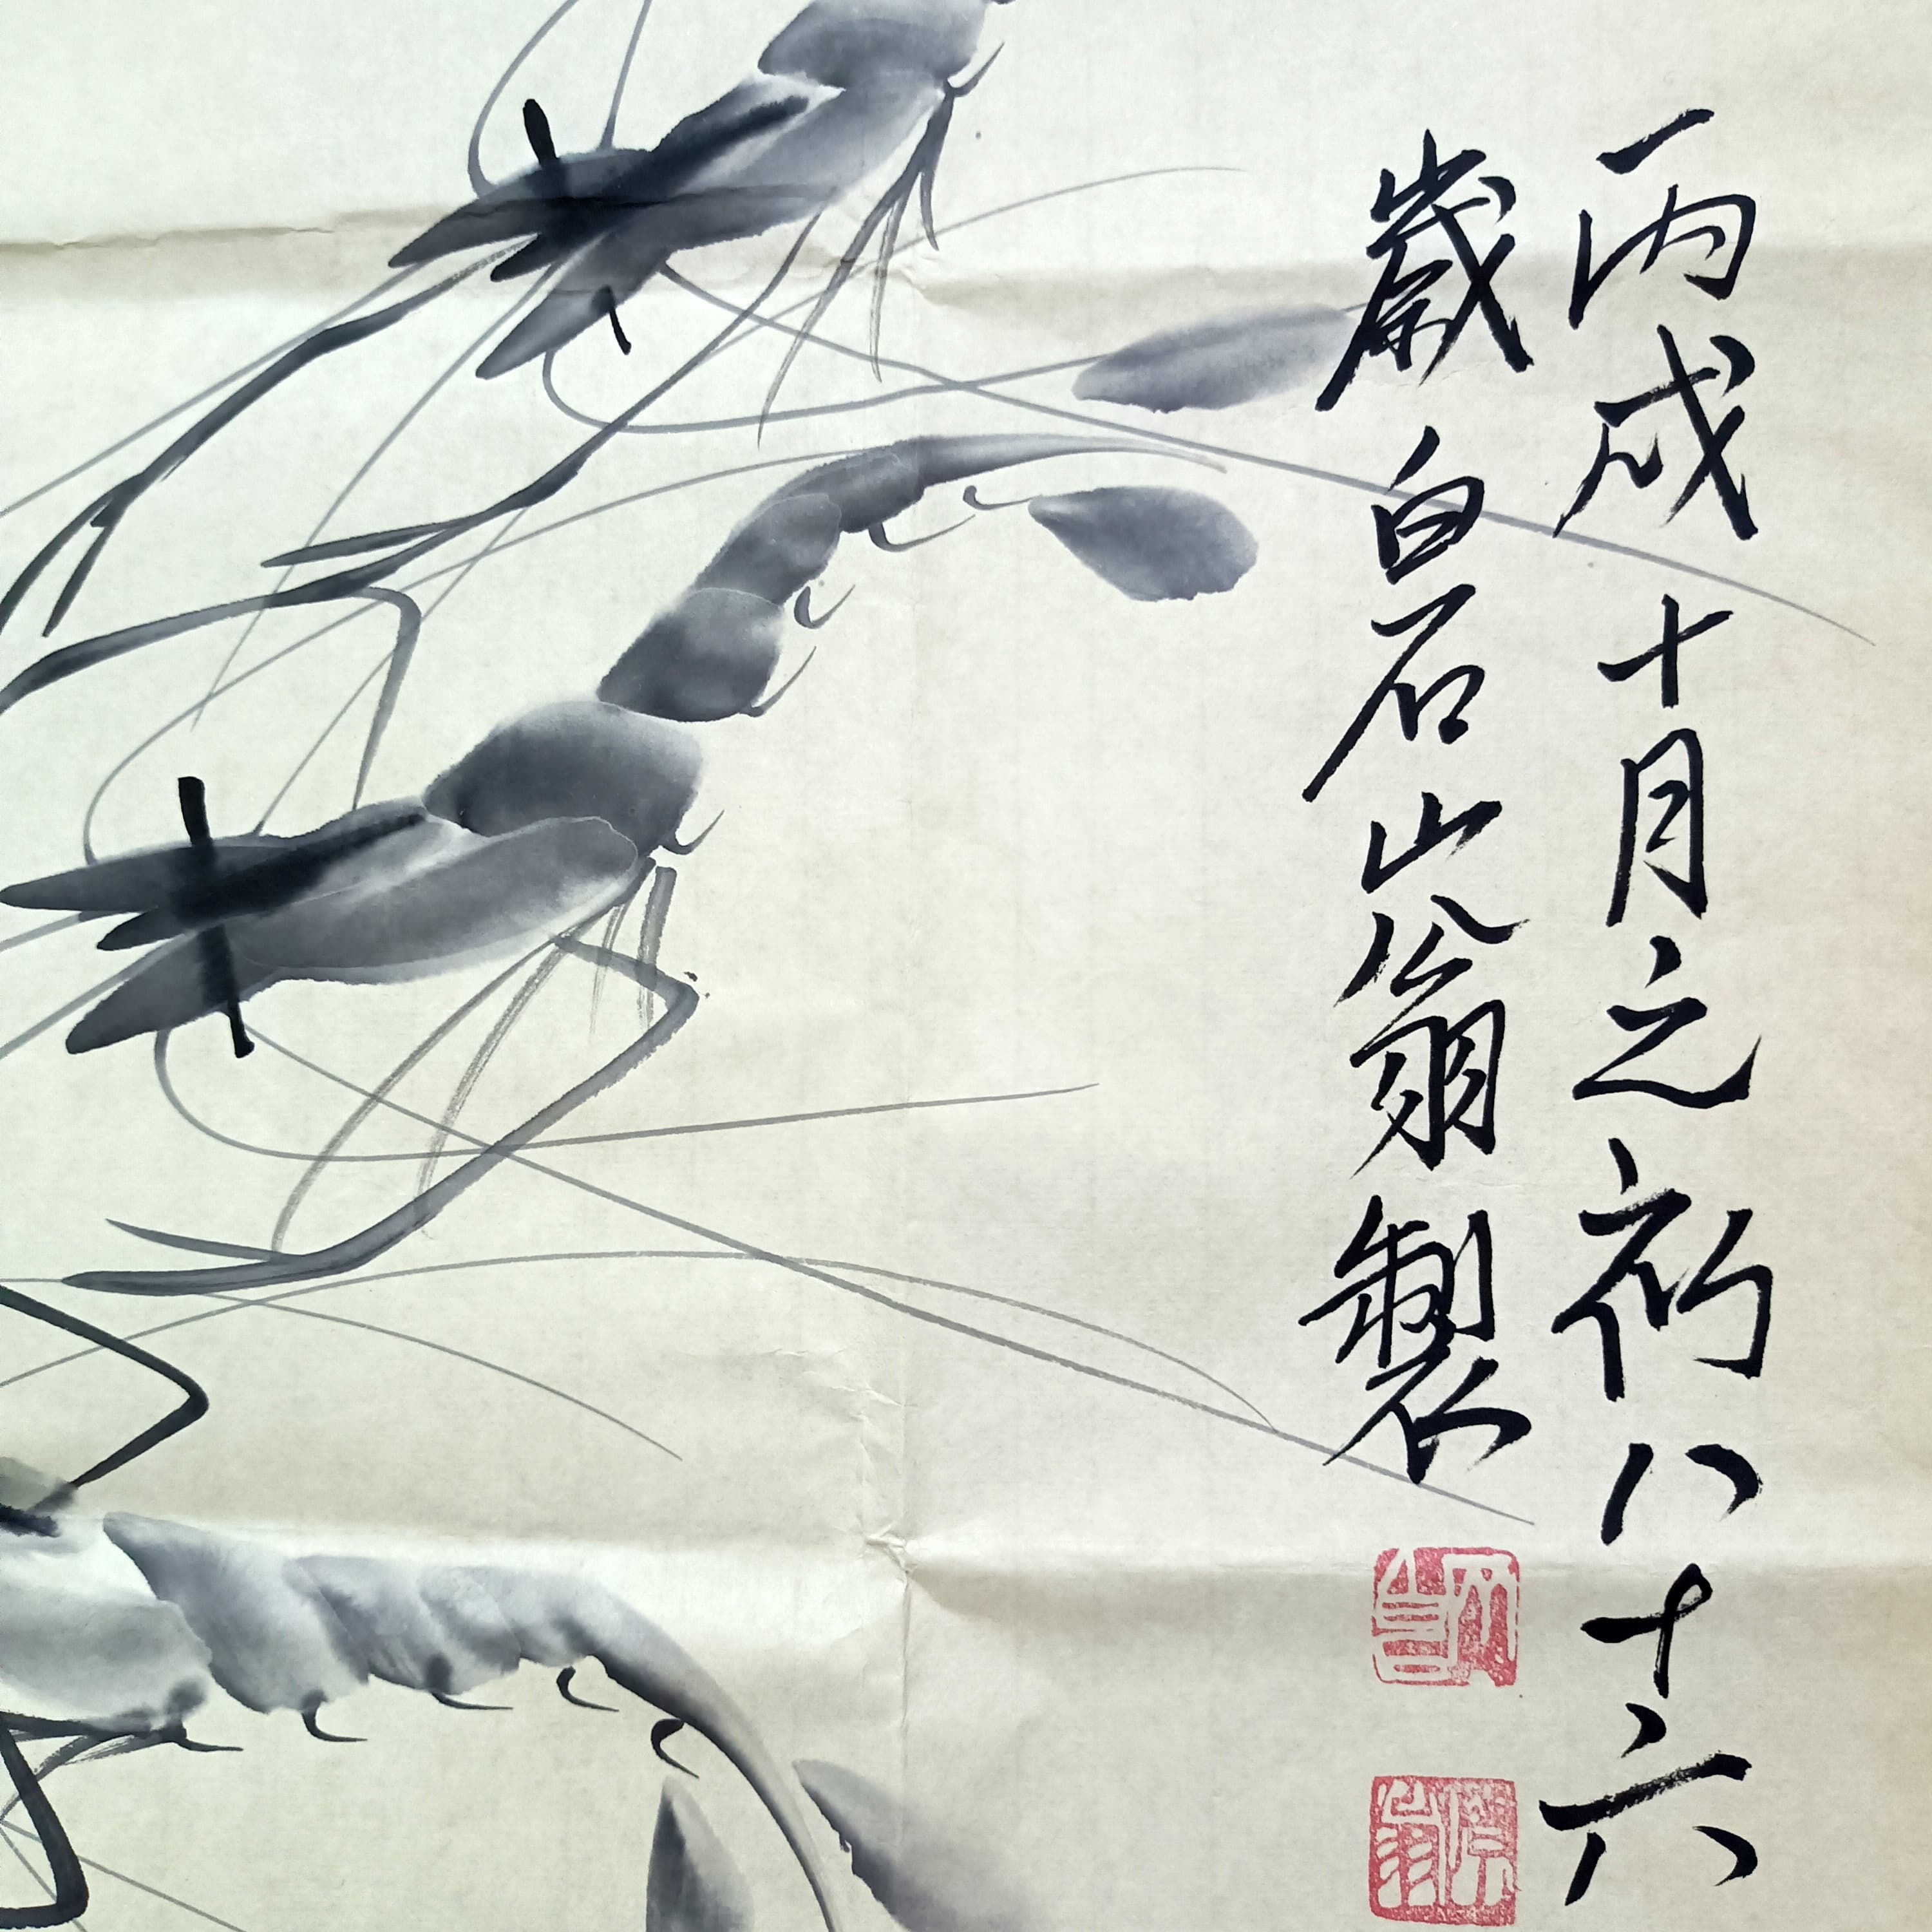 丙戌十月之初八十六
歲白石山翁製